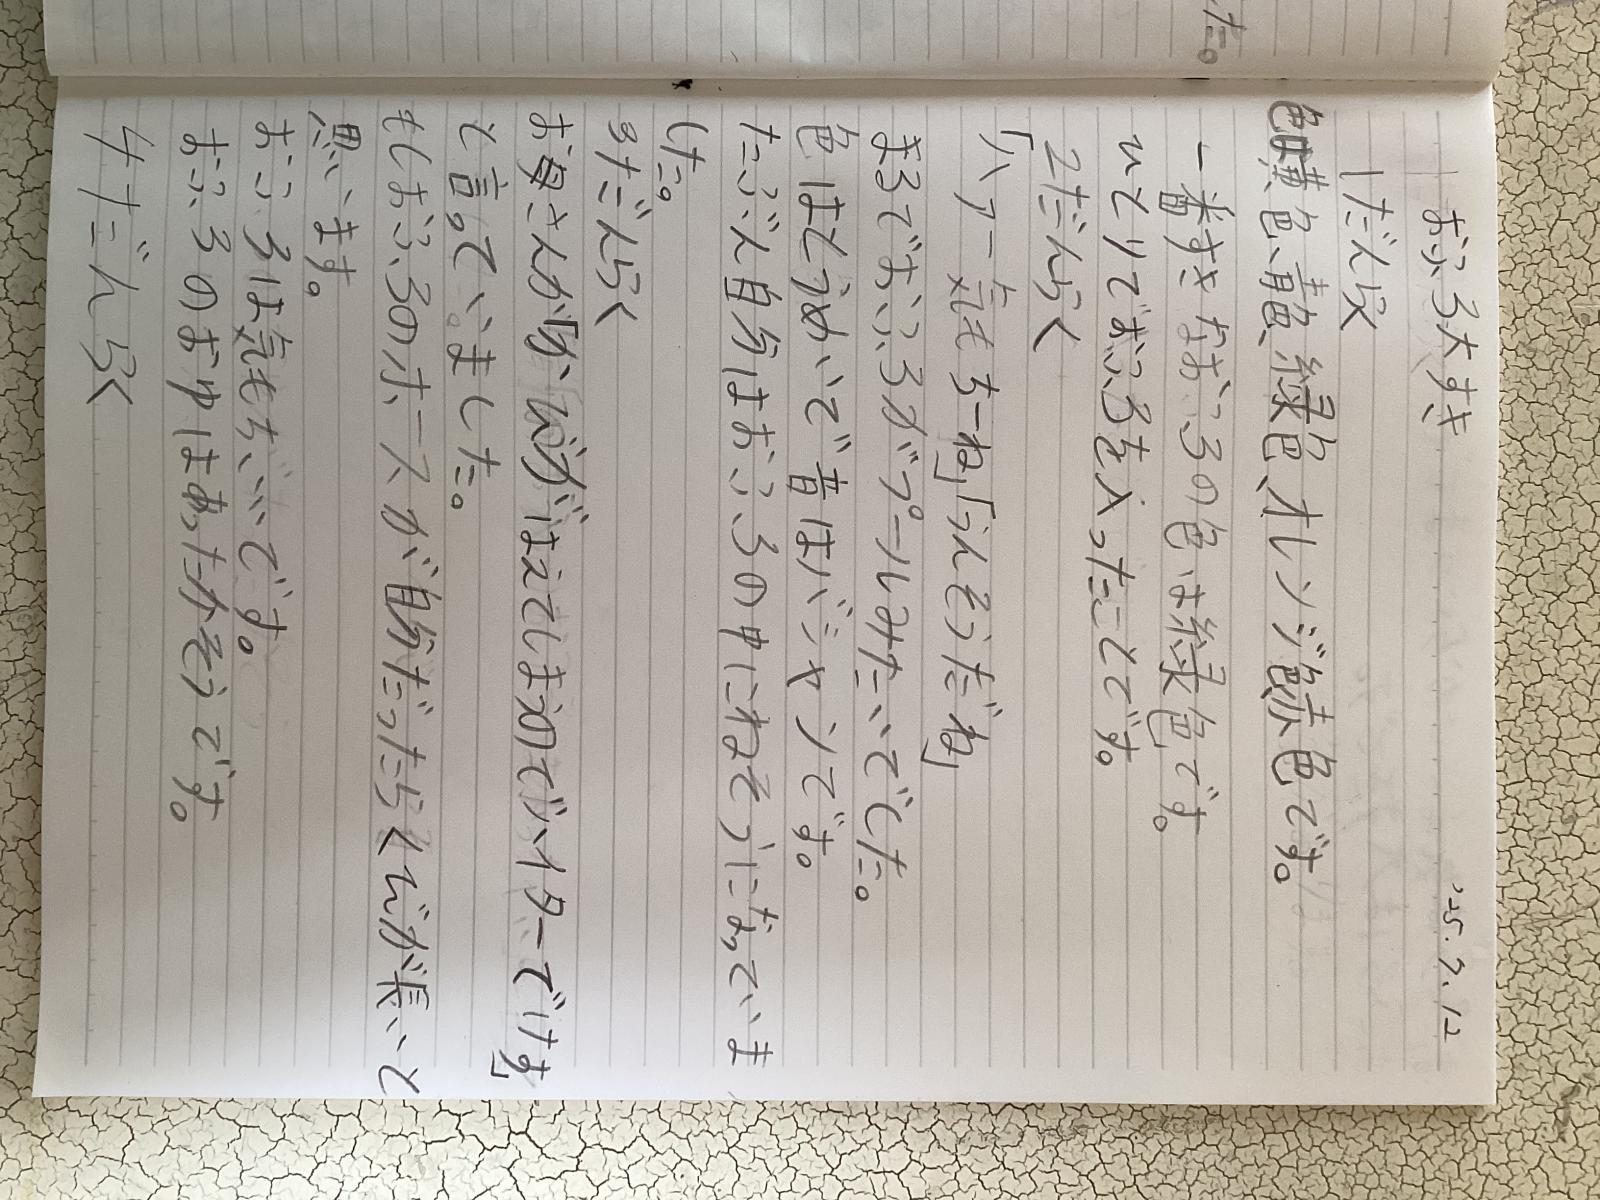 た。
'25.2.12
おふろ大すき
1だんらく
黄色、青色、緑色、オレンジ色、赤色です。
一番すきなおふろの色は緑色です。
ひとりでおふろを入ったことです。
2だんらく
「ハァー気もちーね」「うんそうだね」
まるでおふろがプールみたいでした。
色はとうめいで音はバシャンです。
たぶん自分はおふろの中にねそうになっていま
した。
3だんらく
お母さんが「かびがはえてしまうのでハイターでけす」
と言っていました。
もしおふろのホースが自分だったらくびが長いと
思います。
おふろは気もちいいです。
おふろのおゆはあったかそうです。
4だんらく